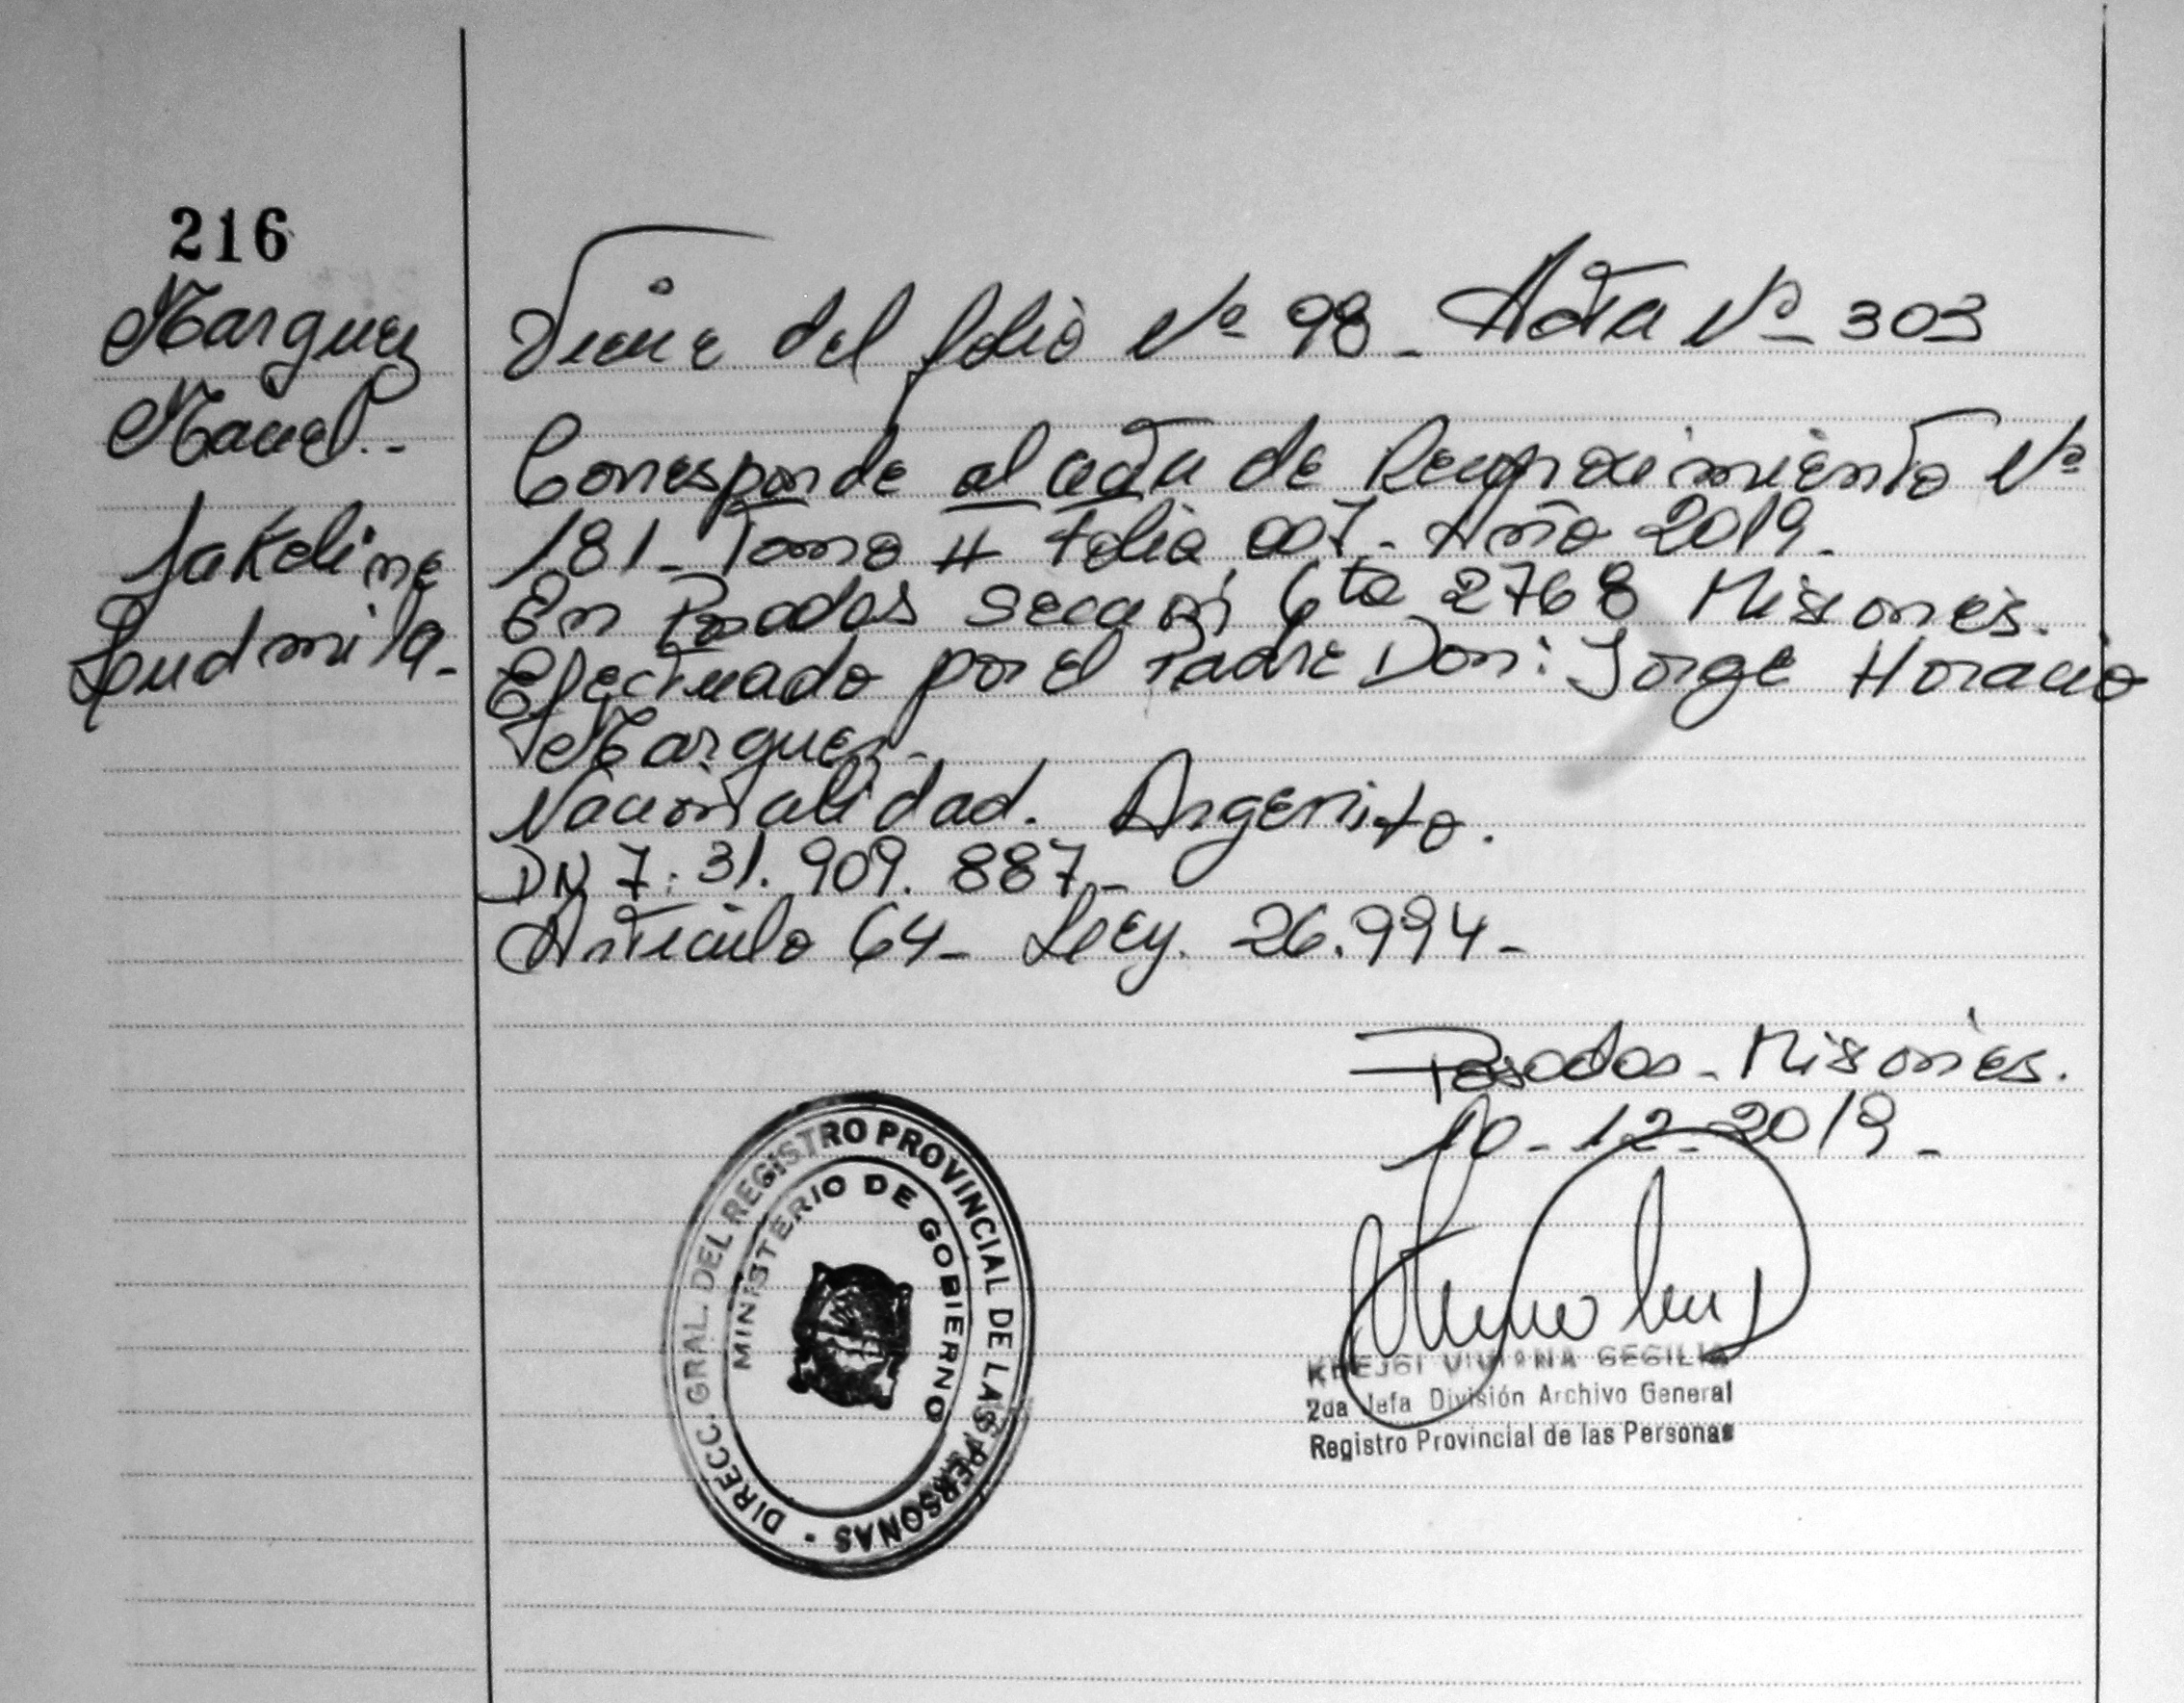 216
Marquez
Maciel.-
Jakeline
Ludmila-
Viene del folio Nº 98- Acta Nº 303
Corresponde al acta de Reconocimiento Nº
181- Tomo II folio 007- Año 2019.
En Posadas Sección 6ta 2768 Misiones.
Efectuado por el Padre Don: Jorge Horacio
Marquez-
Nacionalidad. Argentino.
DNI: 31.909.887-
Artículo 64- Ley. 26.994-
Posadas- Misiones.
10-12-2019-
DIRECC. GRAL. DEL REGISTRO PROVINCIAL DE LAS PERSONAS -
MINISTERIO DE GOBIERNO
VIVIANA CECILIA
2da Jefa División Archivo General
Registro Provincial de las Personas